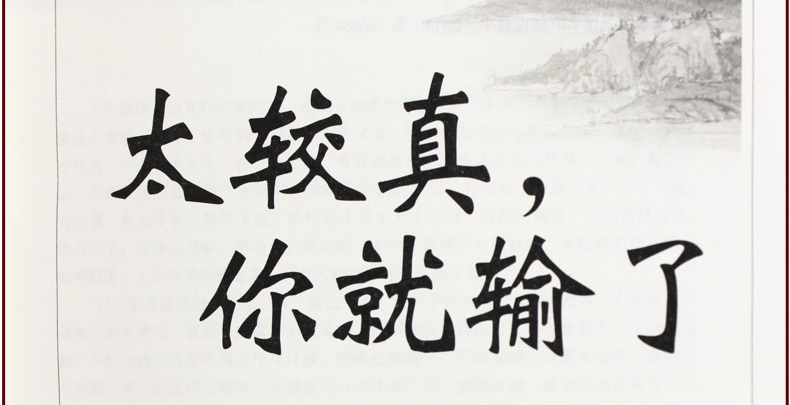 太较真，
你就输了